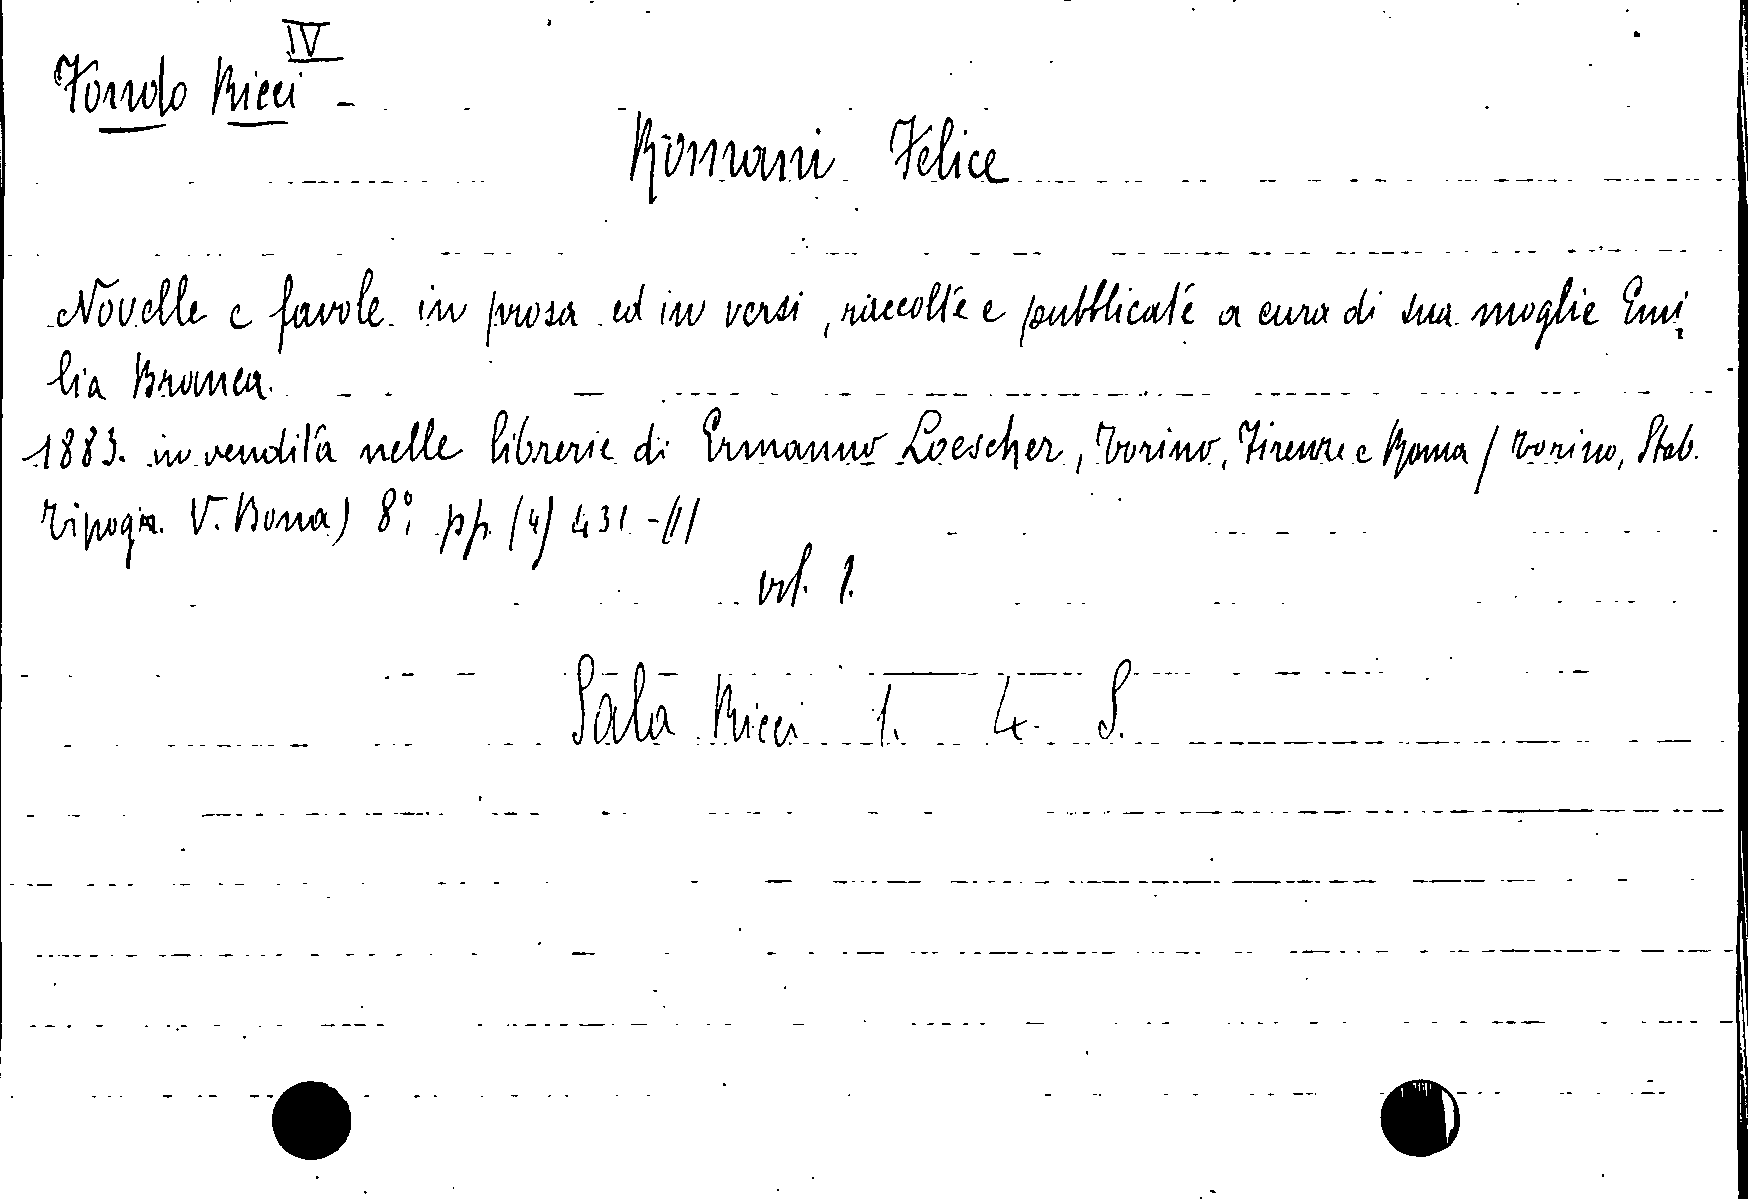 IV
Fondo Ricci -
Romani Felice
Novelle e favole in prosa ed in versi, raccolte e pubblicate a cura di sua moglie Emi
lia Branca.
1883. in vendita nelle librerie di Ermanno Loescher, Torino, Firenze e Roma (Torino, Stab.
Tipogr. V. Bona) 8°; pp. (4) 431 - (1)
vol. 1.
Sala Ricci 1. 4. S.